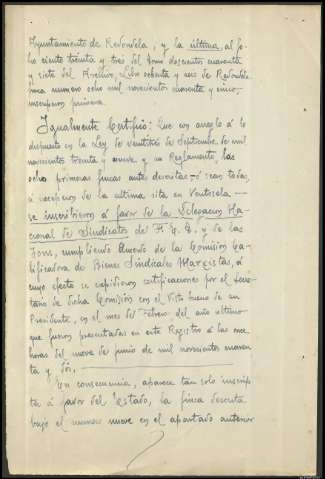 Ayuntamiento de Redondela, y la última, al fo-
lio ciento treinta y tres del tomo doscientos cuarenta
y siete del Archivo, Libro ochenta y seis de Redondela,
finca número ocho mil novecientos cuarenta y cinco,
inscripción primera.
Igualmente Certifico: Que con arreglo á lo
dispuesto en la Ley de veintitrés de Septiembre de mil
novecientos treinta y nueve y su Reglamento, las
ocho primeras fincas antes descritas - ó sean todas,
á excepción de la última sita en Ventosela -
se inscribieron á favor de la Delegación Na-
cional de Sindicatos de F. E. T. y de las
Jons, cumpliendo Acuerdo de la Comisión Ca-
lificadora de Bienes Sindicales Marxistas, á
cuyo efecto se expidieron certificaciones por el Secre-
tario de dicha Comisión con el Visto bueno de su
Presidente, en el mes de Febrero del año último
que fueron presentadas en este Registro á las once
horas del nueve de junio de mil novecientos cuaren-
ta y dós.
En consecuencia, aparece tan solo inscrip-
ta á favor del Estado, la finca descrita
bajo el número nueve en el apartado anterior